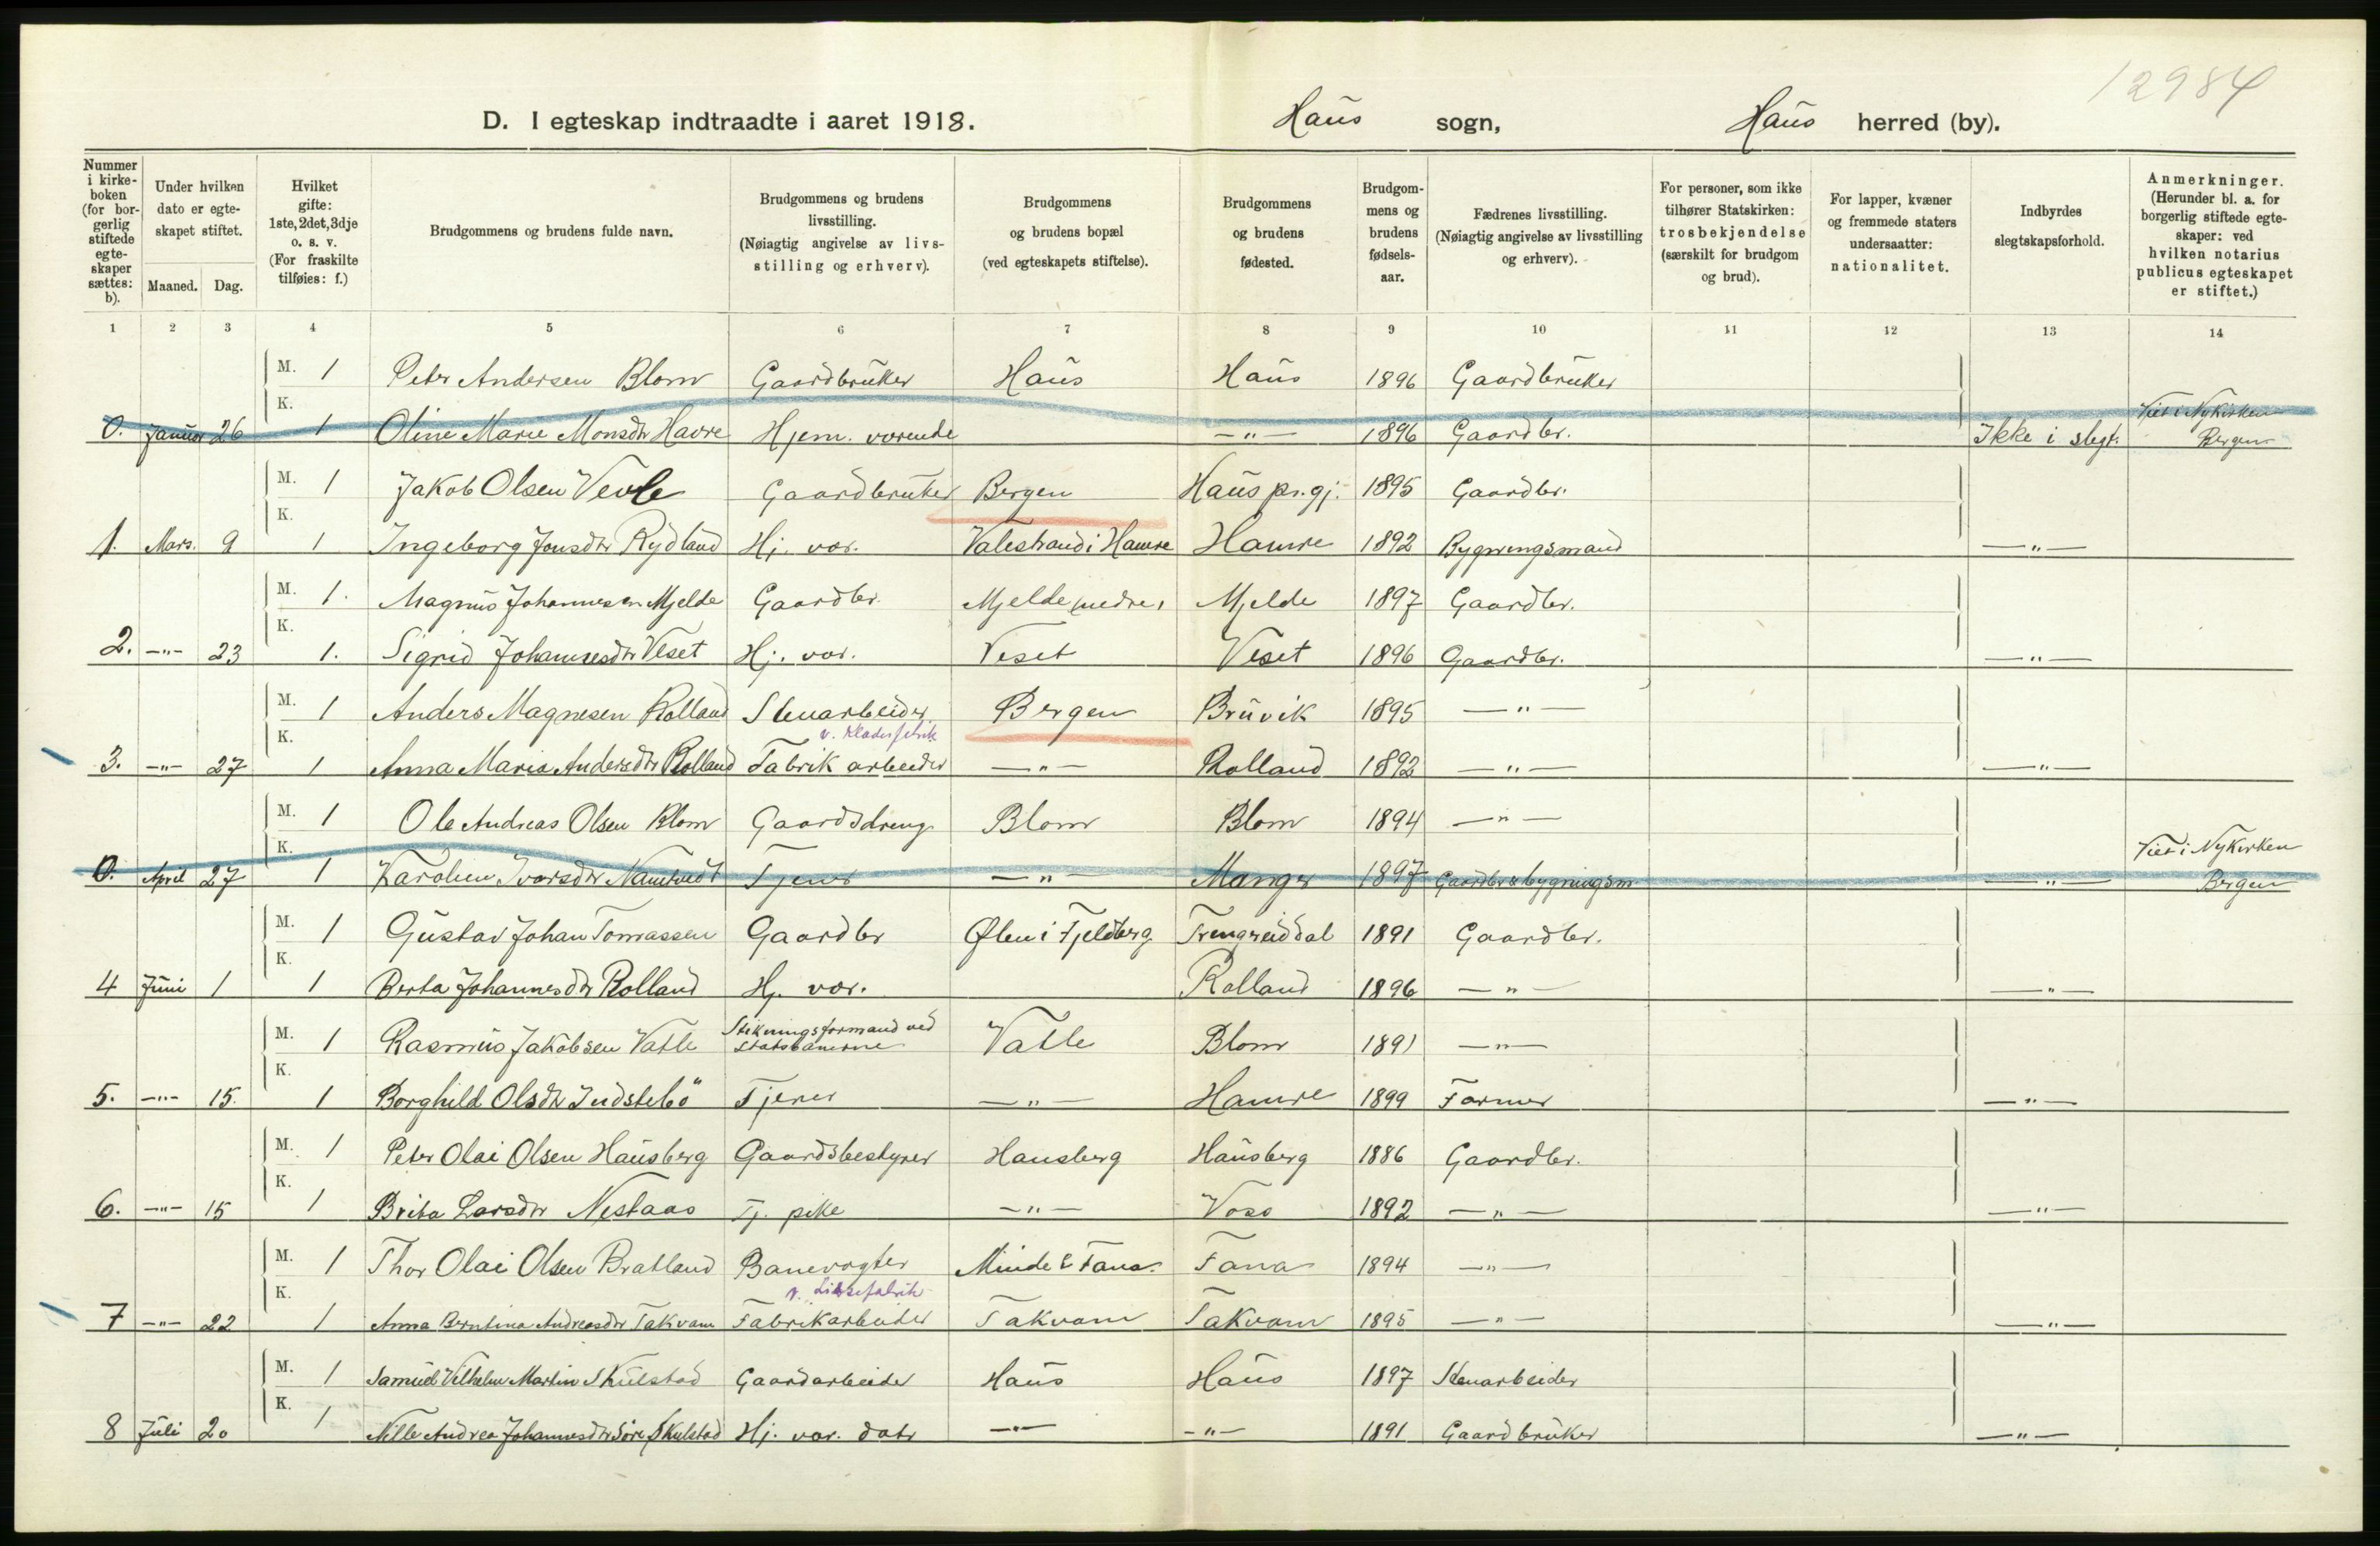 12984
D. I egteskap indtraadte i aaret 1918. Haus sogn, Haus herred (by).
Nummer i kirke-boken (for bor-gerlig stiftede egte-skaper sættes: b).
Under hvilken dato er egte-skapet stiftet.
Maaned. Dag.
Hvilket gifte: 1ste, 2det, 3dje o. s. v. (For fraskilte tilføies: f.)
Brudgommens og brudens fulde navn.
Brudgommens og brudens livsstilling. (Nøiagtig angivelse av livs-stilling og erhverv).
Brudgommens og brudens bopæl (ved egteskapets stiftelse).
Brudgommens og brudens fødested.
Brudgom-mens og brudens fødsels-aar.
Fædrenes livsstilling. (Nøiagtig angivelse av livsstilling og erhverv).
For personer, som ikke tilhører Statskirken: trosbekjendelse (særskilt for brudgom og brud).
For lapper, kvæner og fremmede staters undersaatter: nationalitet.
Indbyrdes slegtskapsforhold.
Anmerkninger. (Herunder bl. a. for borgerlig stiftede egte-skaper: ved hvilken notarius publicus egteskapet er stiftet.)
1 2 3 4 5 6 7 8 9 10 11 12 13 14
M. 1 Peter Andersen Blom Gaardbruker Haus Haus 1896 Gaardbruker
K.
0. Januar 26 1 Oline Marie Monsdtr Havre Hjem. værende —"— 1896 Gaardbr. Ikke i slegt. Viet i Nykirken Bergen
M. 1 Jakob Olsen Vevle Gaardbruker Bergen Haus pr.gj. 1895 Gaardbr.
K.
1. Mars. 9 1 Ingeborg Jonsdtr Rydland Hj. vær. Valestrand i Hamre Hamre 1892 Bygningsmand —"—
M. 1. Magnus Johannesen Mjelde Gaardbr. Mjelde nedre, Mjelde 1897 Gaardbr.
K.
2. —"— 23 1. Sigrid Johannesdtr Veset Hj. vær. Veset Veset 1896 Gaardbr. —"—
M. 1 Anders Magnesen Rolland Stenarbeider Bergen Bruvik 1895 —"—
K. v. Kladesfabrik
3. —"— 27 1 Anna Maria Andersdtr Rolland Fabrik arbeider —"— Rolland 1892 —"— —"—
M. 1 Ole Andreas Olsen Blom Gaardsdreng Blom Blom 1894 —"—
K.
0. April 27 1 Karolien Ivarsdtr Namtvedt Tjener —"— Manger 1897 Gaardbr & bygningsm —"— Viet i Nykirken Bergen
M. 1 Gustav Johan Tomassen Gaardbr Ølen i Fjeldberg Trengereiddal 1891 Gaardbr.
K.
4 Juni 1 1 Berta Johannesdtr Rolland Hj. vær. Rolland 1896 —"— —"—
M. 1 Rasmus Jakobsen Vatle Stikningsformand ved statsbanerne Vatle Blom 1891 —"—
K.
5. —"— 15. 1 Borghild Olsdtr Indstebö Tjener —"— Hamre 1899 Farmer —"—
M. 1 Peter Olai Olsen Hausberg Gaardsbestyrer Hausberg Hausberg 1886 Gaardbr.
K.
6. —"— 15 1 Brita Larsdtr Nestaas Tj. pike —"— Voss 1892 —"— —"—
M. 1 Thor Olai Olsen Bratland Banevogter Minde i Fana. Fana 1894 —"—
K.
7 —"— 22 1 Anna Berntina Andreasdtr Takvam Fabrikarbeider Takvam Takvam 1895 —"— —"—
M. 1 Samuel Vilhelm Martin Skulstad Gaardarbeider Haus Haus 1897 Stenarbeider
K.
8 Juli 20 1 Nille Andrea Johannesdtr Söre Skulstad Hj. vær. datr —"— —"— 1891 Gaardbruker —"—